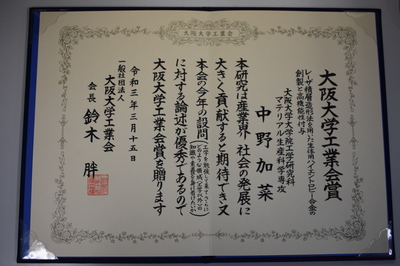 大阪大学工業会
大阪大学工業会賞
レーザ積層造形法を用いた生体用ハイエントロピー合金の
創製と高機能性付与
大阪大学大学院工学研究科
マテリアル生産科学専攻
中野加菜
本研究は産業界・社会の発展に
大きく貢献すると期待でき又
本会の今年の設問
に対する論述が優秀であるので
大阪大学工業会賞を贈ります
令和三年三月十五日
一般社団法人
大阪大学工業会
会長 鈴木胖